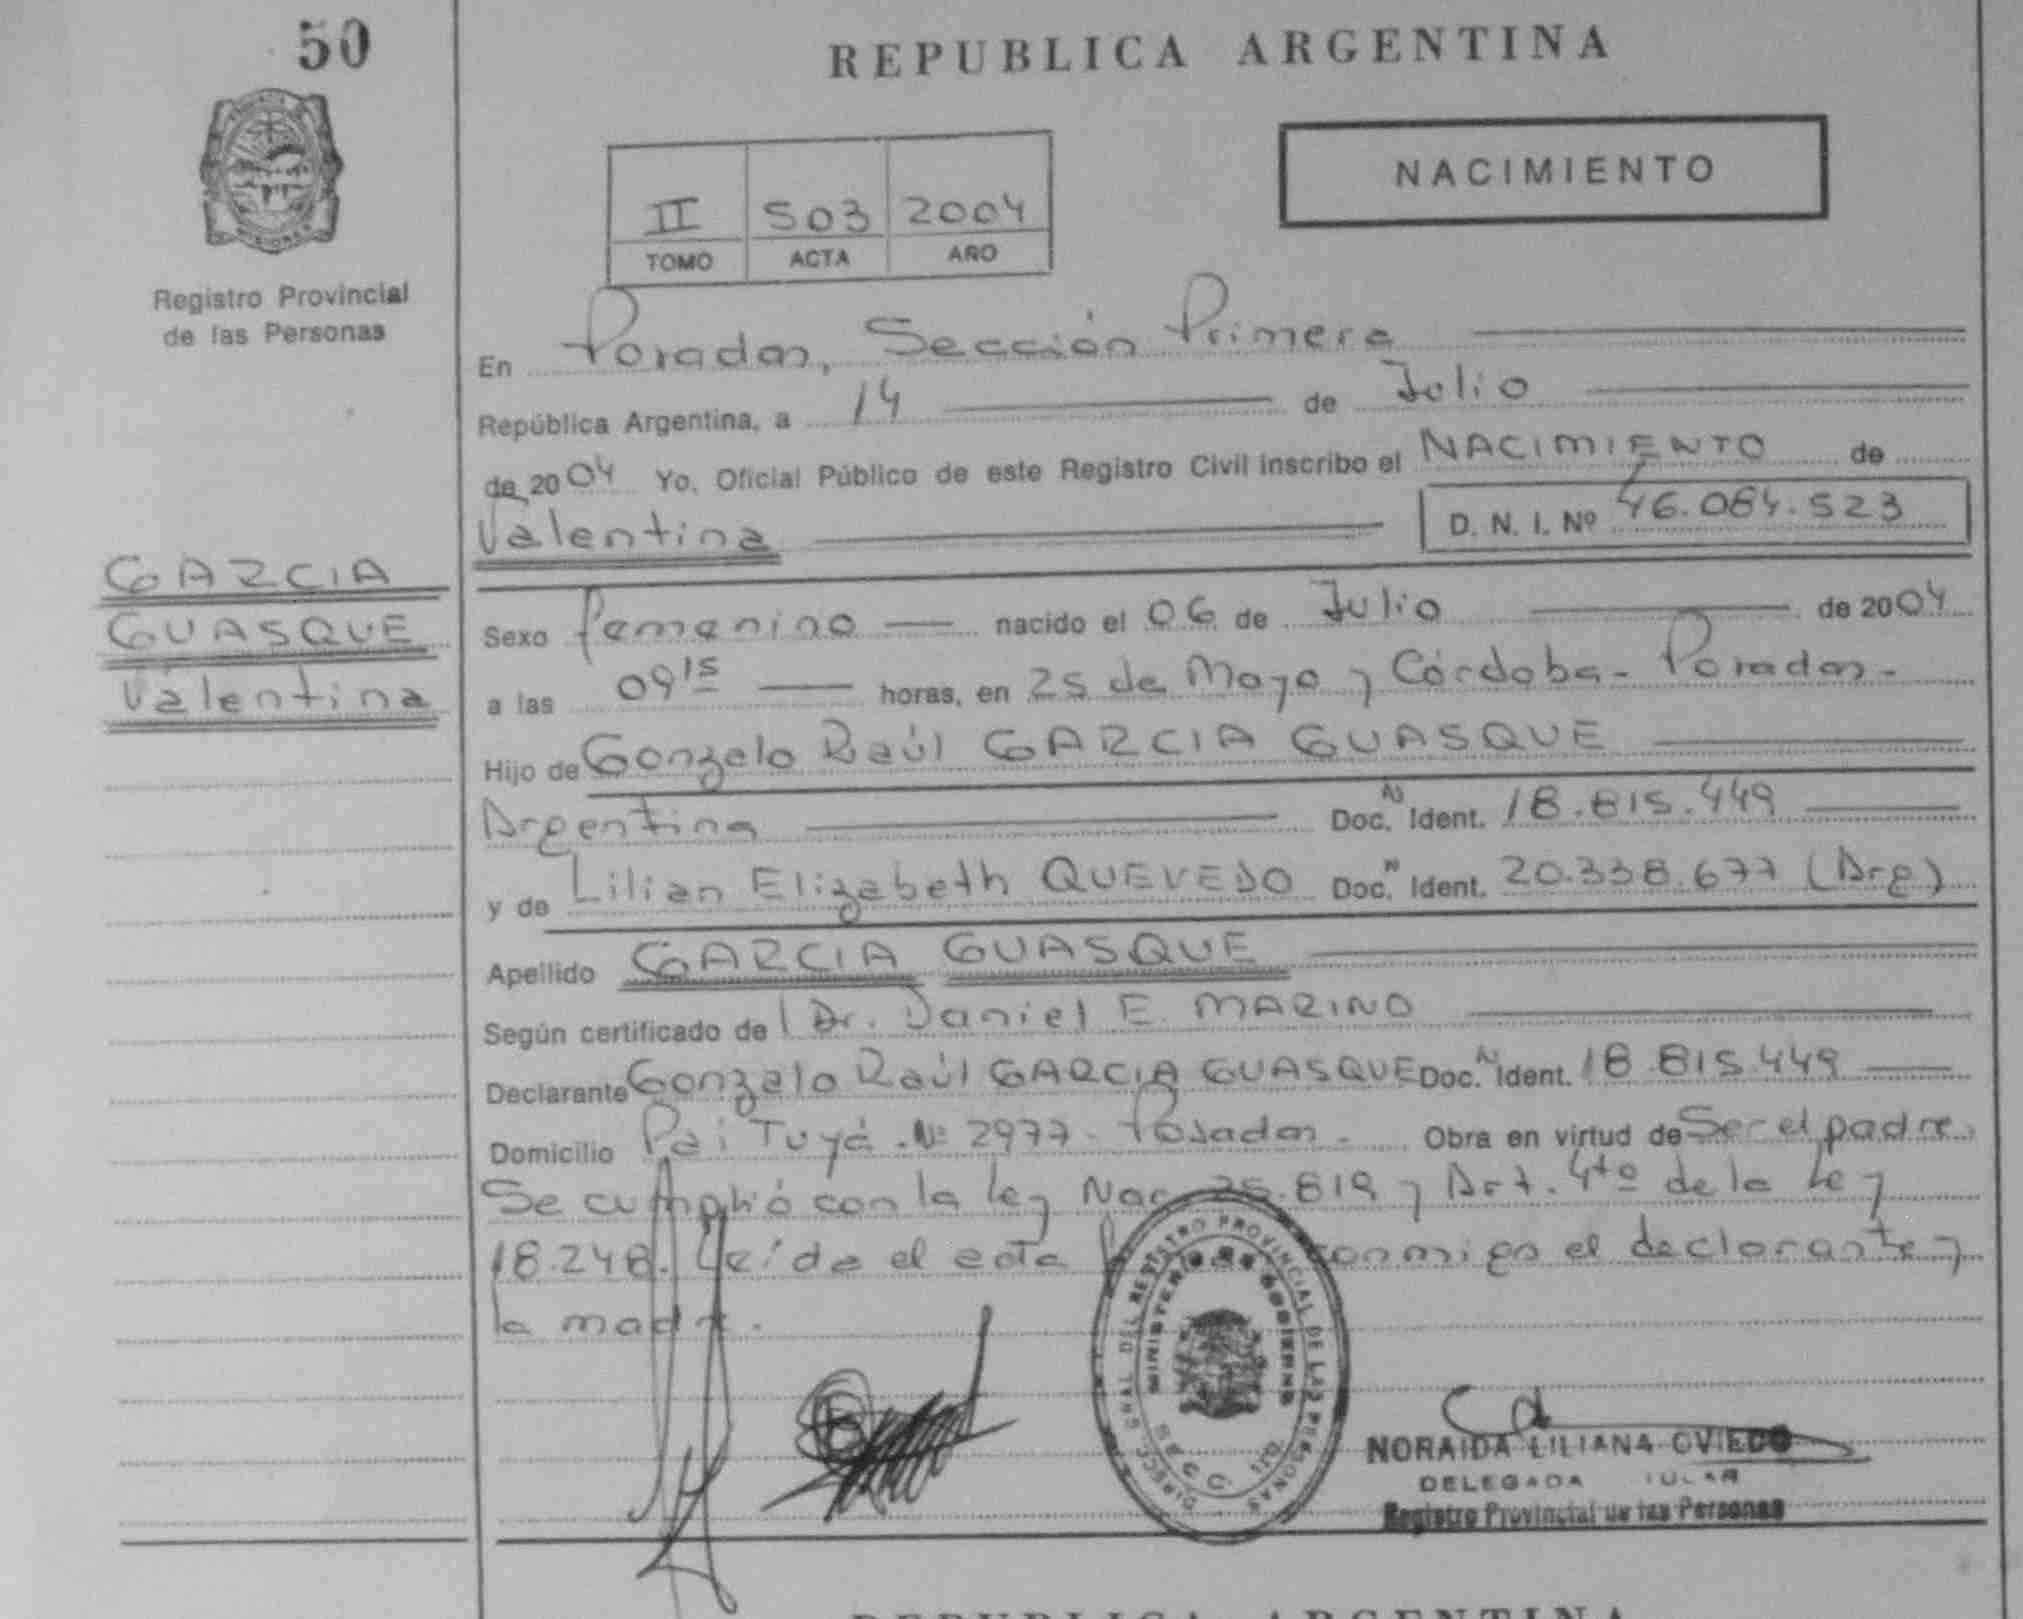 50
REPUBLICA ARGENTINA
NACIMIENTO
II 503 2004
TOMO ACTA AÑO
MISIONES
Registro Provincial
de las Personas
En Posadas, Sección Primera
República Argentina, a 14 de Julio
de 2004 Yo, Oficial Público de este Registro Civil inscribo el NACIMIENTO de
Valentina D. N. I. Nº 46.084.523
GARCIA
GUASQUE
Valentina
Sexo femenino nacido el 06 de Julio de 2004
a las 09 15 horas, en 25 de Mayo y Córdoba - Posadas -
Hijo de Gonzalo Raúl GARCIA GUASQUE
Argentina Doc. N Ident. 18.815.449
y de Lilian Elizabeth QUEVEDO Doc. N Ident. 20.338.677 (Arg)
Apellido GARCIA GUASQUE
Según certificado de Dr. Daniel E. MARINO
Declarante Gonzalo Raúl GARCIA GUASQUE Doc. N Ident. 18.815.449
Domicilio Pai Tuyá - Nº 2977 - Posadas - Obra en virtud de Ser el padre.
Se cumplió con la ley Nac. 25.819 y Art. 4to de la Ley
18.248. Leída el acta conmigo el declarante y
la madre.
DIRECC. GRAL DEL REGISTRO PROVINCIAL DE LAS PERSONAS
MINISTERIO DE GOBIERNO
SECC.
NORAIDA LILIANA OVIEDO
DELEGADA
Registro Provincial de las Personas
REPUBLICA ARGENTINA